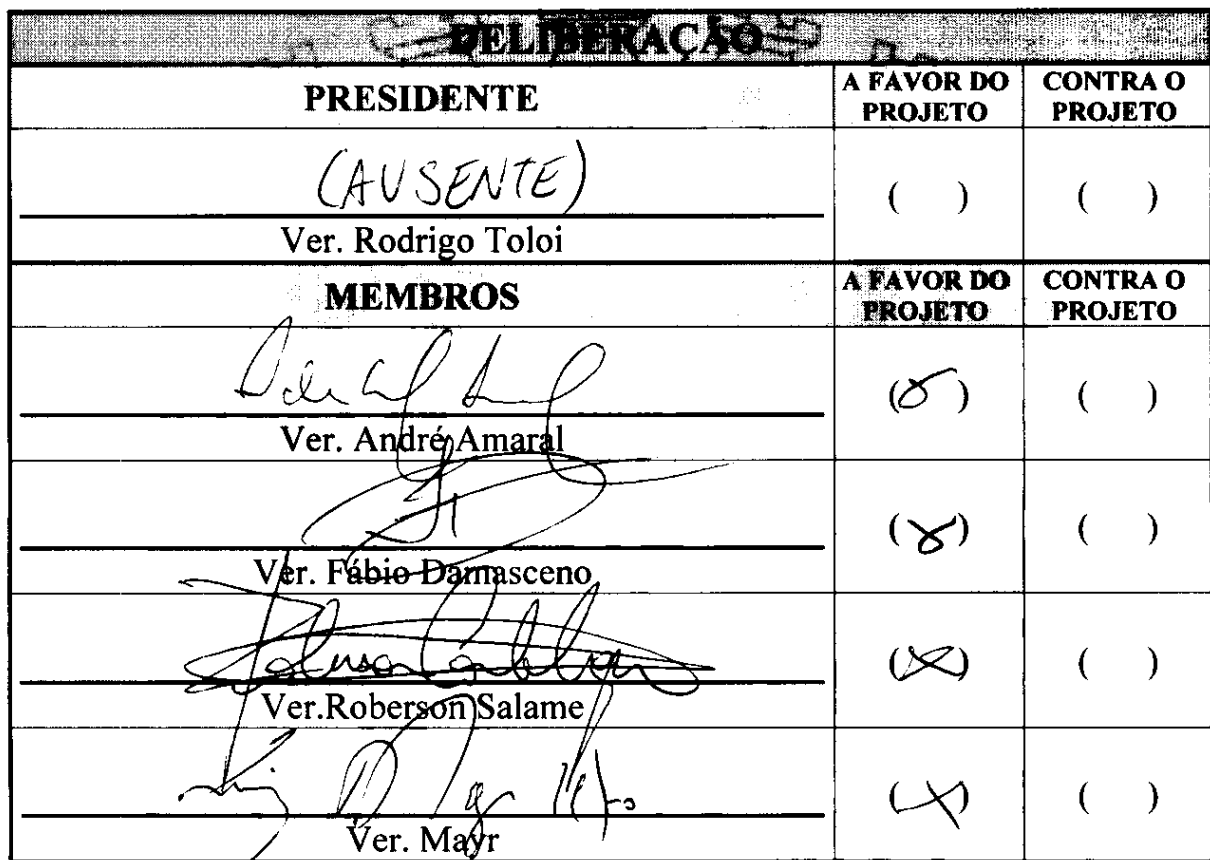 DELIBERAÇÃO
PRESIDENTE
A FAVOR DO PROJETO
CONTRA O PROJETO
(AUSENTE)
( ) ( )
Ver. Rodrigo Toloi
MEMBROS
A FAVOR DO PROJETO
CONTRA O PROJETO
(X) ( )
Ver. André Amaral
(X) ( )
Ver. Fábio Damasceno
(X) ( )
Ver.Roberson Salame
(X) ( )
Ver. Mayr